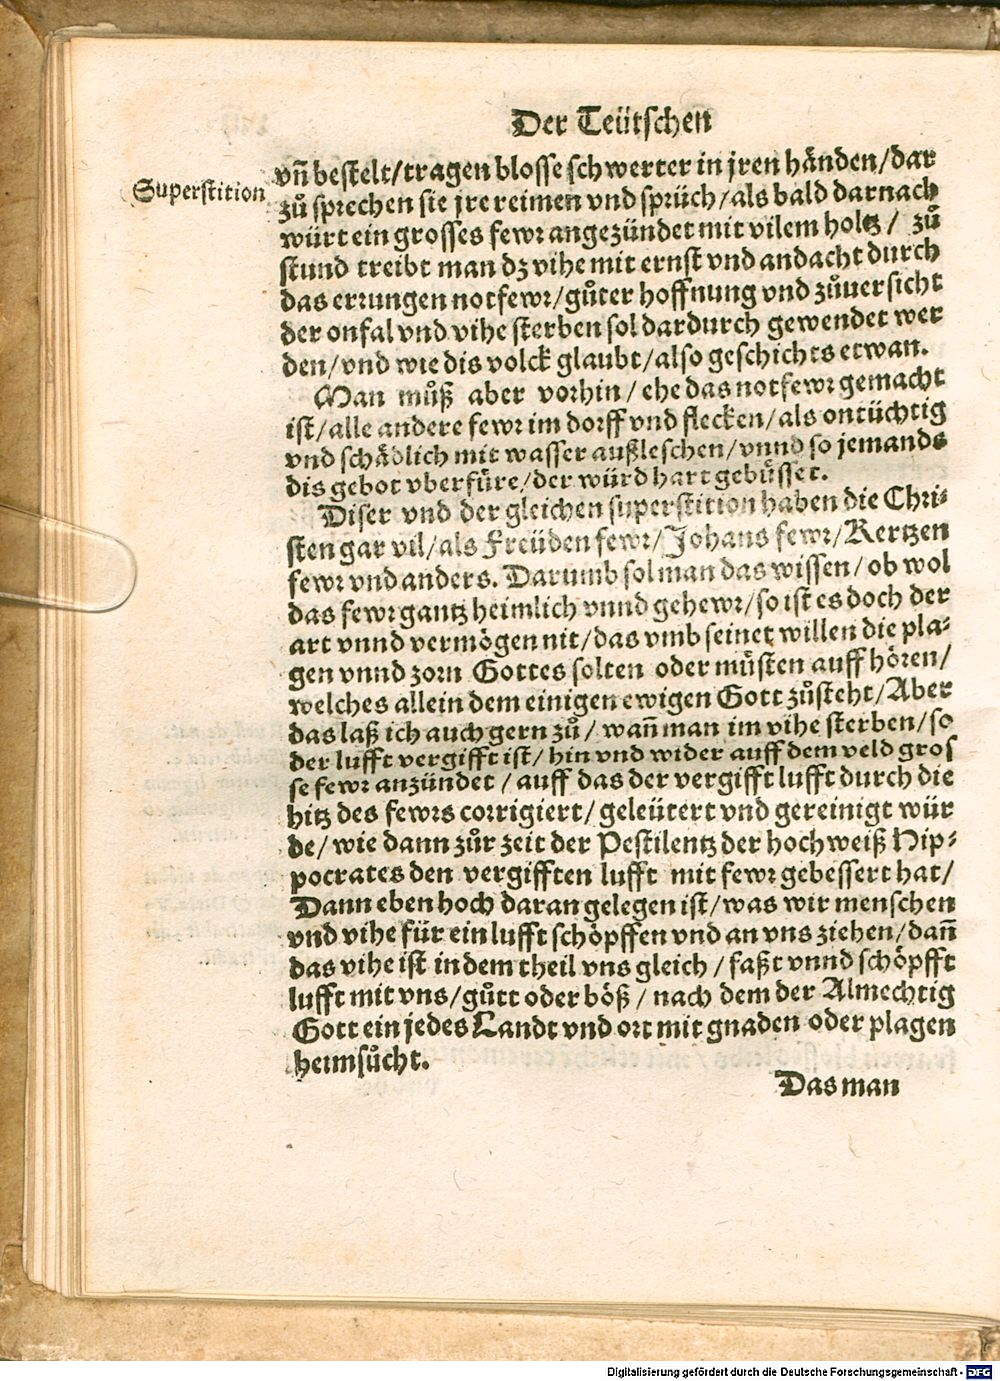 Der Teütschen
Superstition
vñ bestelt/tragen blosse schwerter in jren händen/dar
zů sprechen sie jre reimen vnd sprüch/als bald darnach
würt ein grosses fewr angezündet mit vilem holtz/ zů
stund treibt man dz vihe mit ernst vnd andacht durch
das errungen notfewr/gůter hoffnung vnd zůuersicht
der onfal vnd vihe sterben sol dardurch gewendet wer
den/vnd wie dis volck glaubt/also geschichts etwan.
Man můß aber vorhin/ehe das notfewr gemacht
ist/alle andere fewr im dorff vnd flecken/als ontüchtig
vnd schädlich mit wasser außleschen/vnnd so jemands
dis gebot vberfüre/der würd hart gebüsset.
Diser vnd der gleichen superstition haben die Chri-
sten gar vil/als Freüden fewr/Johans fewr/Kertzen
fewr vnd anders. Darumb sol man das wissen/ob wol
das fewr gantz heimlich vnnd gehewr/so ist es doch der
art vnnd vermögen nit/das vmb seinet willen die pla-
gen vnnd zorn Gottes solten oder müsten auff hören/
welches allein dem einigen ewigen Gott zůsteht/Aber
das laß ich auch gern zů/wañ man im vihe sterben/so
der lufft vergifft ist/hin vnd wider auff dem veld gros
se fewr anzündet/auff das der vergifft lufft durch die
hitz des fewrs corrigiert/geleütert vnd gereinigt wür
de/wie dann zůr zeit der Pestilentz der hochweiß Hip-
pocrates den vergifften lufft mit fewr gebessert hat/
Dann eben hoch daran gelegen ist/was wir menschen
vnd vihe für ein lufft schöpffen vnd an vns ziehen/dañ
das vihe ist in dem theil vns gleich/faßt vnnd schöpfft
lufft mit vns/gůtt oder böß/nach dem der Almechtig
Gott ein jedes Landt vnd ort mit gnaden oder plagen
heimsůcht.
Das man
Digitalisierung gefördert durch die Deutsche Forschungsgemeinschaft - DFG